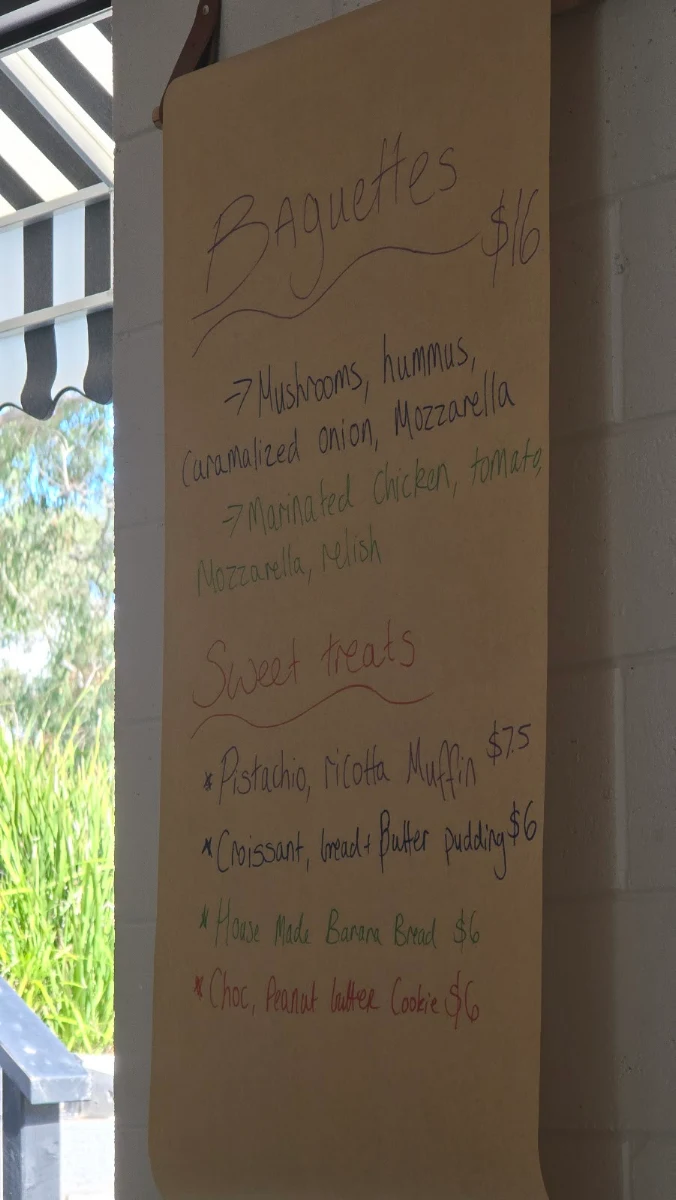 BAguettes $16
→ Mushrooms, hummus,
Caramalized onion, Mozzarella
→ Marinated chicken, tomato,
Mozzarella, relish
Sweet treats
* Pistachio, ricotta Muffin $7.5
* Croissant, bread + Butter pudding $6
* House Made Banana Bread $6
* Choc, Peanut butter Cookie $6